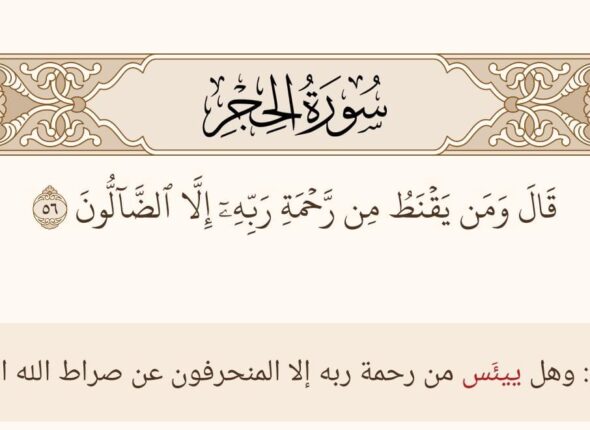 سُورَةُ الحِجْرِ
قَالَ وَمَن يَقْنَطُ مِن رَّحْمَةِ رَبِّهِۦٓ إِلَّا ٱلضَّآلُّونَ ٥٦
: وهل ييئَس من رحمة ربه إلا المنحرفون عن صراط الله ا